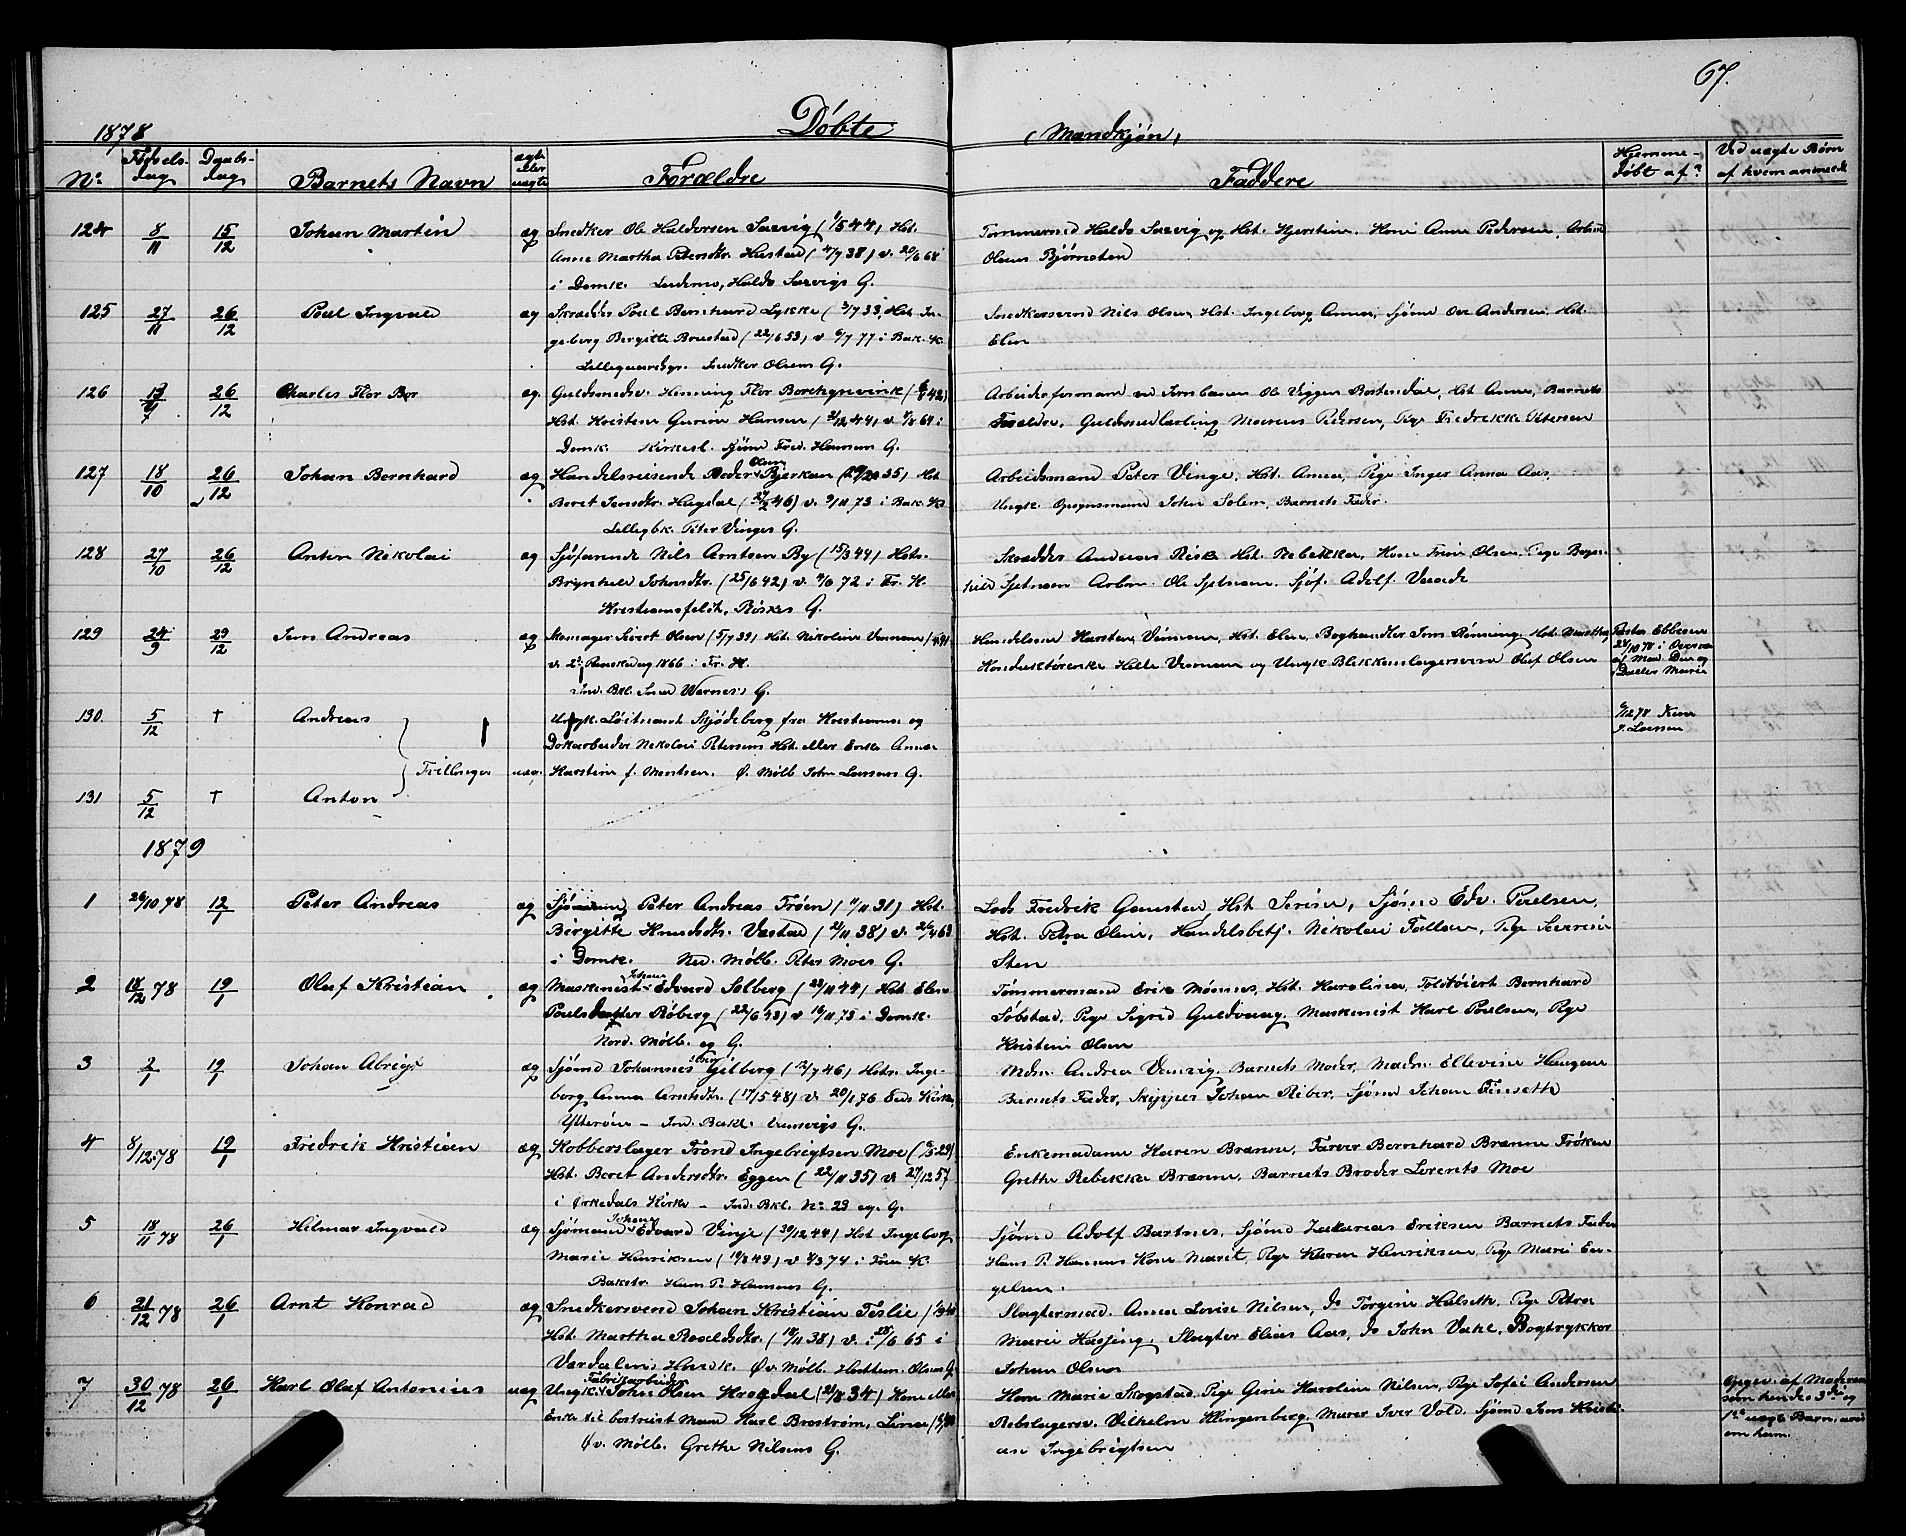 67.
1878
Døbte
(Mandkjøn)
No
Fødsels-
dag
Daabs-
dag
Barnets Navn
ægte
eller
uægte
Forældre
Faddere
Hjemme-
døbt af?
Ved uægte Børn
af hvem anmeldt
124 8/11 15/12 Johan Martin æg Snedker Ole Haldorsen Saxvig (1/5 44) Hst.
Anne Martha Petersdtr. Hustad (4/9 38) v. 20/6 68
i Domk. Lademo, Haldo Saxvigs G.
Tømmermd Haldo Saxvig og Hst. Kjerstine. Kone Anne Pedersen, Arbm
Olaus Bjørnsten
125 27/11 26/12 Poul Ingvald æg Skræder Poul Bernhard Lykke (3/7 33) Hst. In-
geborg Birgitte Brustad (22/6 53) v 6/7 77 i Bak. K.
Lillegaardsgr. Snedker Olsens G.
Snedkersvend Nils Olsen, Hst. Ingeborg Anna, Sjømd Ole Andersen Hst.
Elen
126 26/12 Charles Flor Bor æg. Guldsmedsv. Henning Flor Borchgrevink 42)
Hst. Kristence Gurine Hansen (2/12 44) v. 4/8 64 i
Domk. Kirkesl. Sjømd Fred. Hansens G.
Arbeidsformand ved Jernbanen Ole Viggen Rostendal, Hst Anna, Barnets
Forældre, Guldsmedlærling Mourens Pedersen, Pige Fredrikke Ottersen
127 18/10 26/12 Johan Bernhard æg Handelsreisende Peder Olsen Bjerkan 35) Hst
Beret Jensdtr. Hagdal (27/2 46) v. 9/11 73 i Bak. K.
Lillegbk. Peter Vinges G.
Arbeidsmand Peter Vinge, Hst. Anna, Pige Inger Anna Aas,
Ungk. Opsynsmand John Solem, Barnets Fader.
128 27/10 26/12 Anton Nikolai æg Sjøfarende Nils Arntsen By (15/3 44) Hst.
Brynhild Johnsdtr. (25/6 42) v. 4/6 72 i Fr. K.
Kristiansfeldt, Röskes G.
Skrædder Andreas Risk Hst. Rebekka, Kone Trine Olsen, Pige Berg-
hild Sjetnæm Arbm. Ole Sjetnæm. Sjøf. Adolf Vaade
129 24/9 29/12 Jens Andreas æg Skomager Sivert Olsen (5/7 39) Hst. Nikoline
v. 2d Paaskedag 1866 i Fr. K.
Ind. Bkl. Sned Wernes's G.
Handelsm Karsten Veimsen, Hst. Elen, Boghandler Jens Rönning, Hst. Martha,
Konduktörenke Helle og Ungk Blikkenslagersvend Oluf Olsen
Pastor Ebbesen
28/10 78 i Overvær
af Mad. Due og
Datter Marie
130. 5/12 † Andreas
Ungk. Løitnant Skjödeberg fra Kristiania og
Dokarbeider Nikolai Petersens Hst. eller Enke Anna
Tvillinger uæg. Karstine f. Mentsen. Ø. Mölb. John Larsens G.
6/12 78 Kone
J. Larsen
131 5/12 † Anton
1879
1 26/10 78 12/1 Peter Andreas æg Sjømand Peter Andreas Frøen (1/11 31) Hst.
Birgitte Knudsdtr. Vastad (2/11 38) v. 26/4 63
i Domk. Ned. Mölb. Peter Moes G.
Lods Fredrik Gansten, Hst. Serine, Sjømd Edv. Paulsen,
Hst. Petra Oline, Handelsbetj. Nikolai Fallan, Pige Severine
Sten
2 18/12 78 19/1 Oluf Kristian æg Maskinist Johan Edvard Solberg (23/11 44) Hst. Elen
Poulsdatter Röberg (22/6 43) v 16/11 73 i Domk.
Nord. Mölb. eg G.
Tømmermand Erik Mønnes, Hst. Karoline, Toldbøiert Bernhard
Søbstad, Pige Sigrid Guldvaag, Maskinist Karl Poulsen, Pige
Kristine Olsen
3 2/1 19/1 Johan Abrigt æg Sjømd Johannes Gilberg (12/7 46) Hst. Inge-
borg Anna Arntsdtr. (17/5 48) v. 20/1 76 Eids Kirke,
Ytterøen - Ind. Bakl. G.
Mdm. Andrea Vennvig, Barnets Moder, Madm. Ellevine Haugan
Barnets Fader, Skipper Johan Riber, Sjømd Johan Finseth
4 8/12 78 19/1 Fredrik Kristian æg Kobberslager Trond Ingebrigtsen Moe
Hst. Beret Andersdtr. Eggen (22/11 35) v. 27/12 57
i Orkedals Kirke - Ind. Bkl. No 23 eg. G.
Enkemadame Karen Brænne, Farver Bernhard Brænne, Frøken
Grethe Rebekka Brænne, Barnets Broder Lorents Moe
5 18/11 78 26/1 Hilmar Ingvald æg Sjømand Johan Edvard Vinje (30/12 44) Hst Ingeborg
Marie Henriksen (19/3 49) v 8/3 74 i Frue K.
Bakstr. Hans P. Hansens G.
Sjømd Adolf Bartnes, Sjømd Zakarias Eriksen Barnets Fader
Hans P. Hansens Kone Maret, Pige Karen Henriksen, Pige Marie En-
gelsen.
6 21/12 78 26/1 Arnt Konrad æg Snedkersvend Johan Kristian Teslie
Hst. Martha Roaldsdtr. (18/11 38) v. 25/6 65 i
Værdalens Hovedk. Øv. Mölb. Olsens G.
Slagtermad. Anna Lovise Nilsen, do Torgine Halseth, Pige Petra
Marie Hasfing, Slagter Elias Aas, do John Vahl, Bogtrykker
Johan Olsen
7 30/12 78 26/1 Karl Olaf Antonius uæg Ungk. Fabrikarbeider John Olsen Krogdal 34) Kone eller
Enke til bortreist Mand Karl Broström, Lina
Øv. Mölb. Grethe Nilsens G.
Kone Marie Skogstad, Pige Gine Karoline Nilsen, Pige Sofie Andersen
Rebslagersv. Vilhelm Klingenberg, Murer Iver Vold. Sjømd Jens Kristi-
an Ingebrigtsen
Opgiv. af Moderen
som hendes 3die og
1ste uægte Barn, med
om ham.